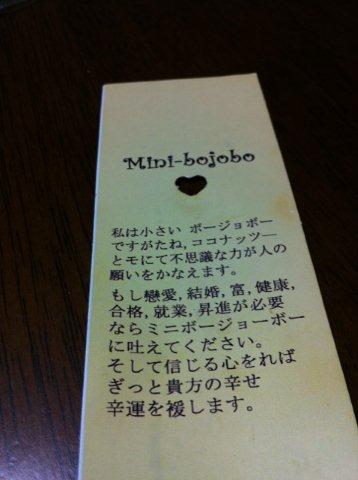 Mini-bojobo
私は小さい ボージョボー
ですがたね, ココナッツ—
とモにて不思議な力が人の
願いをかなえます。
もし戀愛, 結婚, 富, 健康,
合格, 就業, 昇進が必要
ならミニボージョーボー
に吐えてください。
そして信じる心をれば
ぎっと貴方の幸せ
幸運を褑します。